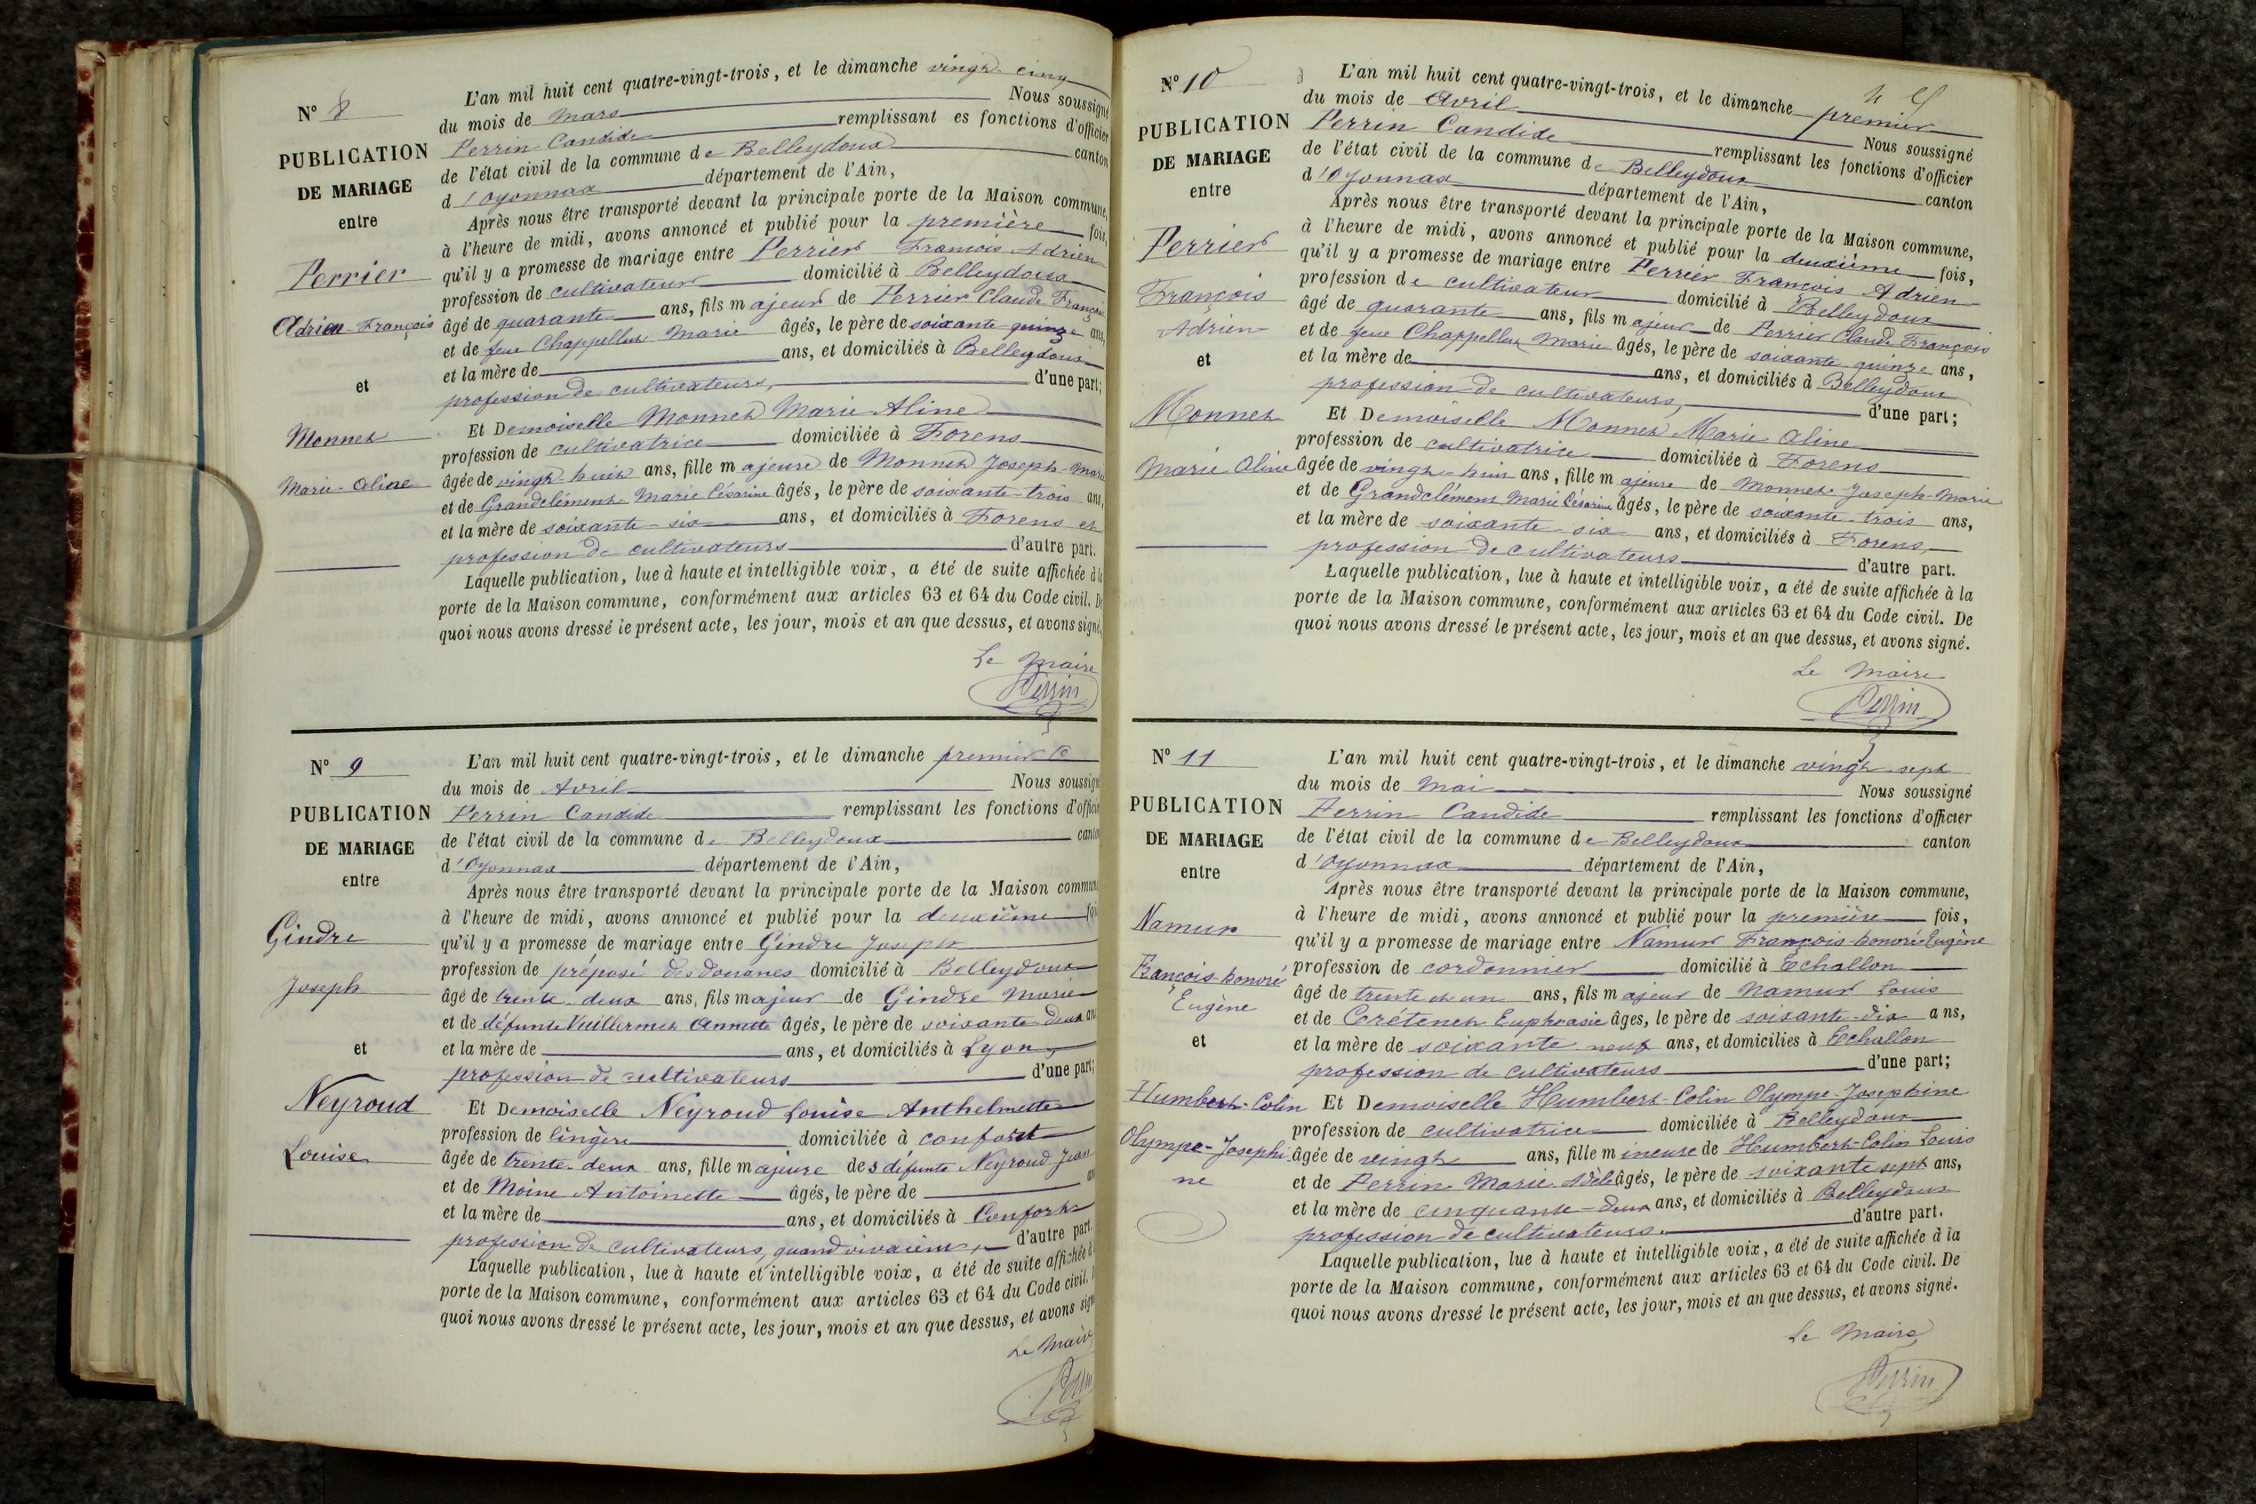 N° 8
PUBLICATION
DE MARIAGE
entre
Perrier
Adrien François
et
Monnet
Marie-Aline
L'an mil huit cent quatre-vingt-trois, et le dimanche vingt cinq
du mois de Mars Nous soussigné
Perrin Candide remplissant es fonctions d'officier
de l'état civil de la commune de Belleydoux canton
d'Oyonnax département de l'Ain,
Après nous être transporté devant la principale porte de la Maison commune,
à l'heure de midi, avons annoncé et publié pour la première fois,
qu'il y a promesse de mariage entre Perrier François Adrien
profession de cultivateur domicilié à Belleydoux
âgé de quarante ans, fils majeur de Perrier Claude François
et de feue Chappelluz Marie âgés, le père de soixante quinze ans,
et la mère de ans, et domiciliés à Belleydoux
profession de cultivateurs, d'une part;
Et Demoiselle Monnet Marie Aline
profession de cultivatrice domiciliée à Forens
âgée de vingt-huit ans, fille majeure de Monnet Joseph-Marie
et de Grandclément Marie Césarine âgés, le père de soixante-trois ans,
et la mère de soixante-six ans, et domiciliés à Forens et
profession de cultivateurs d'autre part.
Laquelle publication, lue à haute et intelligible voix, a été de suite affichée à la
porte de la Maison commune, conformément aux articles 63 et 64 du Code civil. De
quoi nous avons dressé le présent acte, les jour, mois et an que dessus, et avons signé.
Le Maire
Perrin
N° 9
PUBLICATION
DE MARIAGE
entre
Gindre
Joseph
et
Neyroud
Louise
L'an mil huit cent quatre-vingt-trois, et le dimanche premier
du mois de Avril Nous soussigné
Perrin Candide remplissant les fonctions d'officier
de l'état civil de la commune de Belleydoux canton
d'Oyonnax département de l'Ain,
Après nous être transporté devant la principale porte de la Maison commune
à l'heure de midi, avons annoncé et publié pour la deuxième fois
qu'il y a promesse de mariage entre Gindre Joseph
profession de préposé des douanes domicilié à Belleydoux
âgé de trente deux ans, fils majeur de Gindre Marie
et de défunte Vuillermet Annette âgés, le père de soixante-deux ans
et la mère de ans, et domiciliés à Lyon,
profession de cultivateurs d'une part;
Et Demoiselle Neyroud Louise Anthelmette
profession de lingère domiciliée à confort
âgée de trente-deux ans, fille majeure des défunts Neyroud Jean
et de Moine Antoinette âgés, le père de ans
et la mère de ans, et domiciliés à Confort
profession de cultivateurs, quand vivaient, d'autre part.
Laquelle publication, lue à haute et intelligible voix, a été de suite affichée à la
porte de la Maison commune, conformément aux articles 63 et 64 du Code civil.
quoi nous avons dressé le présent acte, les jour, mois et an que dessus, et avons signé
Le Maire
Perrin
N° 10
PUBLICATION
DE MARIAGE
entre
Perrier
François
Adrien
et
Monnet
Marie Aline
L'an mil huit cent quatre-vingt-trois, et le dimanche premier
du mois de Avril Nous soussigné
Perrin Candide remplissant les fonctions d'officier
de l'état civil de la commune de Belleydoux canton
d'Oyonnax département de l'Ain,
Après nous être transporté devant la principale porte de la Maison commune,
à l'heure de midi, avons annoncé et publié pour la deuxième fois,
qu'il y a promesse de mariage entre Perrier François Adrien
profession de cultivateur domicilié à Belleydoux
âgé de quarante ans, fils majeur de Perrier Claude François
et de feue Chappelluz Marie âgés, le père de soixante-quinze ans,
et la mère de ans, et domiciliés à Belleydoux
profession de cultivateurs, d'une part;
Et Demoiselle Monnet Marie Aline
profession de cultivatrice domiciliée à Forens
âgée de vingt-huit ans, fille majeure de Monnet Joseph-Marie
et de Grandclément Marie Césarine âgés, le père de soixante-trois ans,
et la mère de soixante-six ans, et domiciliés à Forens,
profession de cultivateurs d'autre part.
Laquelle publication, lue à haute et intelligible voix, a été de suite affichée à la
porte de la Maison commune, conformément aux articles 63 et 64 du Code civil. De
quoi nous avons dressé le présent acte, les jour, mois et an que dessus, et avons signé.
Le Maire
Perrin
N° 11
PUBLICATION
DE MARIAGE
entre
Namur
François-honoré
Eugène
et
Humbert-Colin
Olympe-Josephi-
ne
L'an mil huit cent quatre-vingt-trois, et le dimanche vingt-sept
du mois de Mai Nous soussigné
Perrin Candide remplissant les fonctions d'officier
de l'état civil de la commune de Belleydoux canton
d'Oyonnax département de l'Ain,
Après nous être transporté devant la principale porte de la Maison commune,
à l'heure de midi, avons annoncé et publié pour la première fois,
qu'il y a promesse de mariage entre Namur François-honoré Eugène
profession de cordonnier domicilié à Echallon
âgé de trente et un ans, fils majeur de Namur Louis
et de Crétenet Euphrasie âges, le père de soixante-dix ans,
et la mère de soixante neuf ans, et domicilies à Echallon
profession de cultivateurs d'une part;
Et Demoiselle Humbert-Colin Olympe-Josephine
profession de cultivatrice domiciliée à Belleydoux
âgée de vingt ans, fille mineure de Humbert-Colin Louis
et de Perrin Marie âgés, le père de soixante sept ans,
et la mère de cinquante-deux ans, et domiciliés à Belleydoux
profession de cultivateurs. d'autre part.
Laquelle publication, lue à haute et intelligible voix, a été de suite affichée à la
porte de la Maison commune, conformément aux articles 63 et 64 du Code civil. De
quoi nous avons dressé le présent acte, les jour, mois et an que dessus, et avons signé.
Le Maire
Perrin